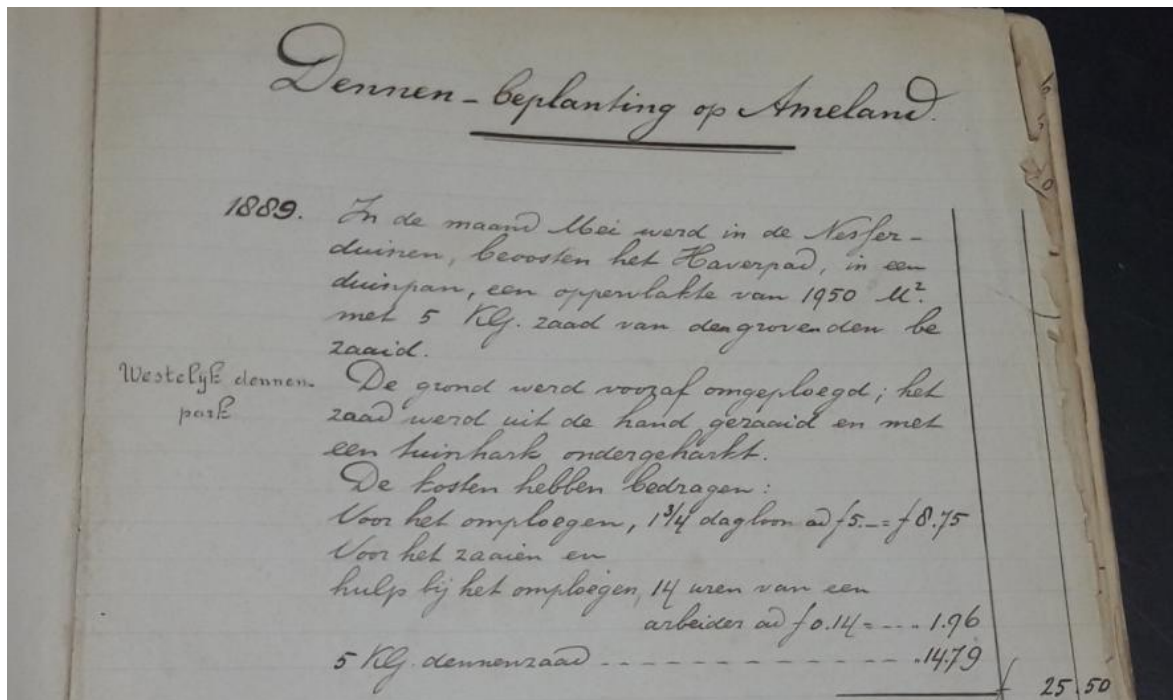 Dennen-beplanting op Ameland.
1889. In de maand Mei werd in de Nesser-
duinen, beoosten het Haverpad, in een
duinpan, een oppervlakte van 1950 M².
met 5 KG. zaad van den groven den be
zaaid.
Westelijk dennen-
park
De grond werd vooraf omgeploegd; het
zaad werd uit de hand gezaaid en met
een tuinhark ondergeharkt.
De kosten hebben bedragen:
Voor het omploegen, 1 3/4 dagloon ad f 5.– = f 8.75
Voor het zaaien en
hulp bij het omploegen, 14 uren van een
arbeider ad f 0.14 = - - - - 1.96
5 KG. dennenzaad - - - - - - - - - - - - - „ 14.79
f 25 50